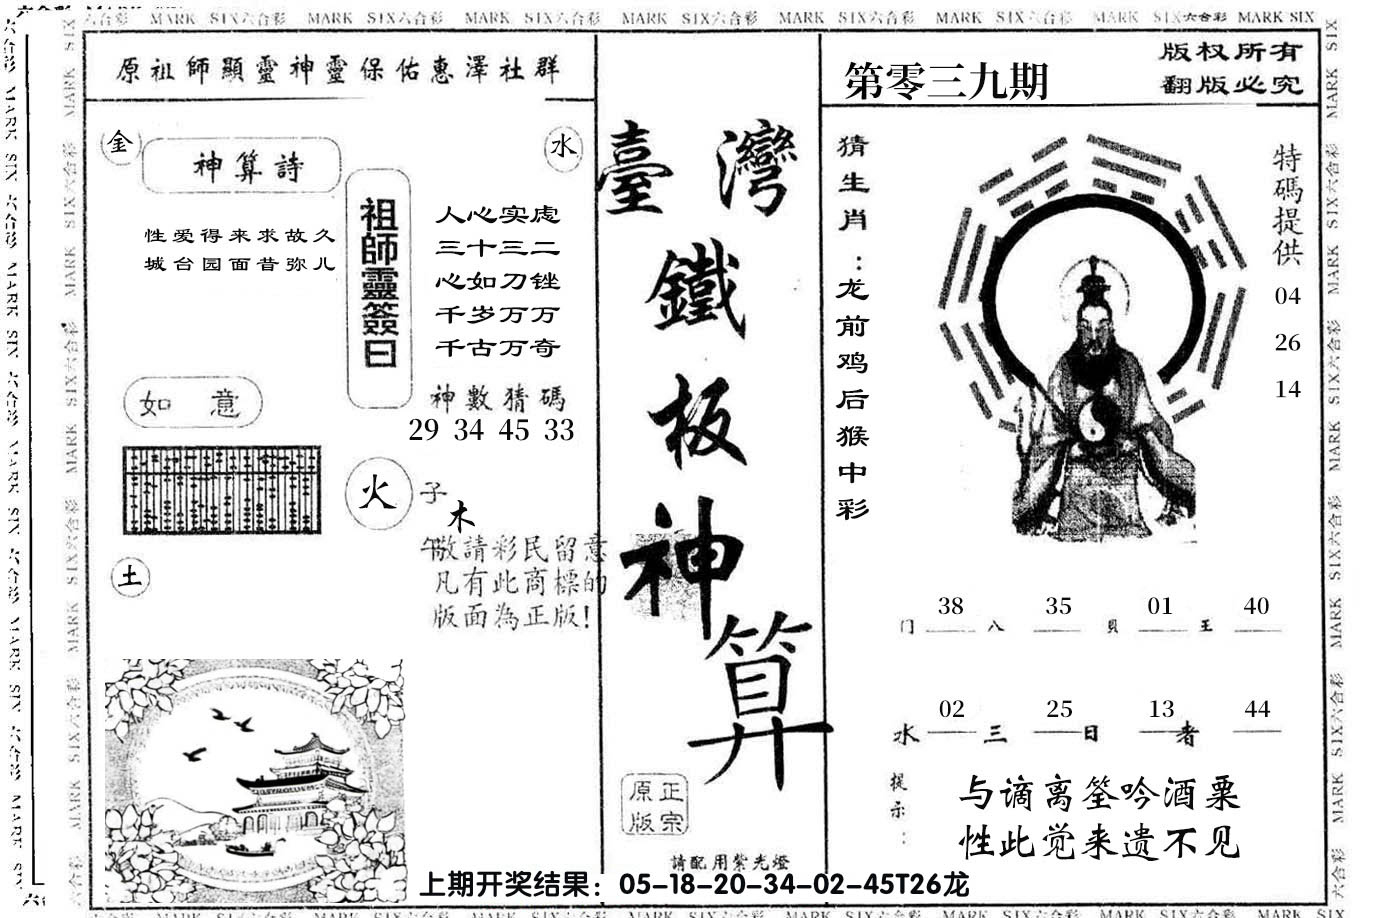 MARK SIX六合彩 MARK SIX六合彩 MARK SIX六合彩 MARK SIX六合彩 MARK SIX六合彩 MARK SIX六合彩 MARK SIX六合彩 MARK SIX
原祖師顯靈神靈保佑惠澤社群
金
水
神算詩
性爱得来求故久
城台园面昔弥儿
祖師靈簽曰
人心实虑
三十三二
心如刀锉
千岁万万
千古万奇
神數猜碼
29 34 45 33
如意
火
子
木
午
敬請彩民留意
凡有此商標的
版面為正版!
土
臺灣
鐵
板
神
算
正宗
原版
請配用紫光燈
第零三九期
版权所有
翻版必究
猜生肖:龙前鸡后猴中彩
特碼提供
04
26
14
门 38 八 35 貝 01 王 40
水 02 三 25 日 13 者 44
提示:
与谪离筌吟酒粟
性此觉来遗不见
上期开奖结果：05-18-20-34-02-45T26龙